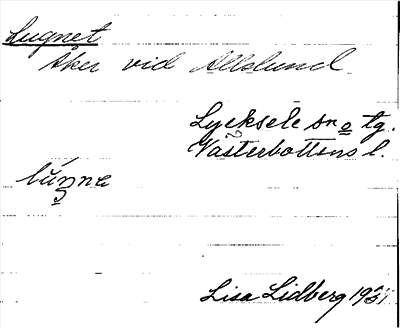 Lugnet
Åker vid Allslund
Lycksele sn o tg.
Västerbottens l.
Lisa Lidberg 1931